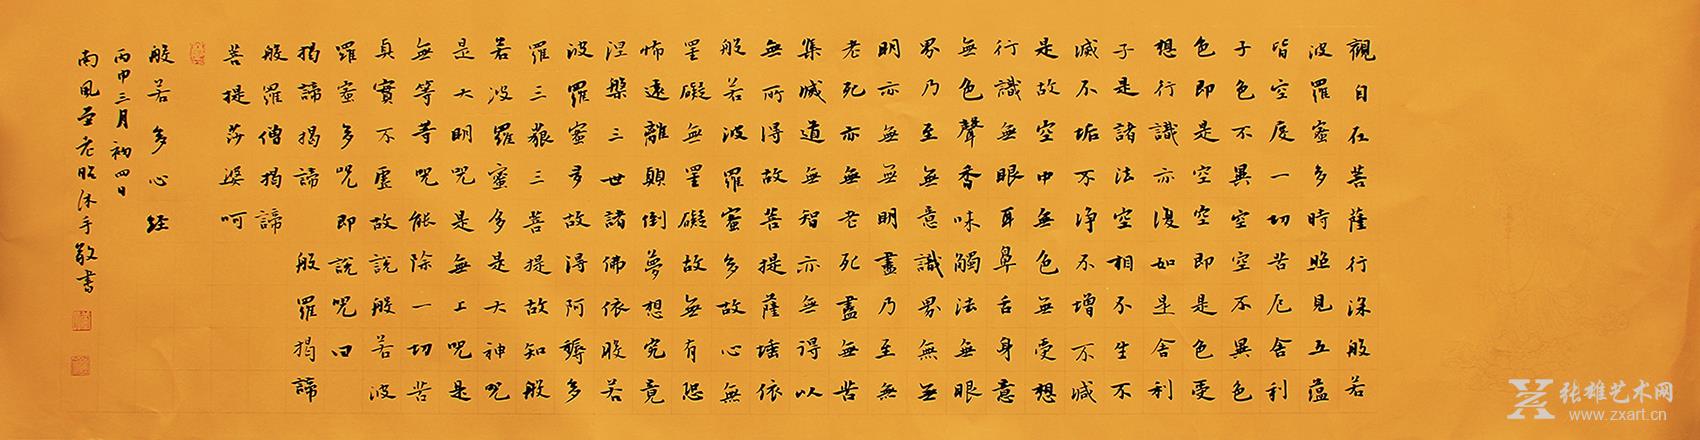 觀自在菩薩行深般若
波羅蜜多時照見五蘊
皆空度一切苦厄舍利
子色不異空空不異色
色即是空空即是色受
想行識亦復如是舍利
子是諸法空相不生不
滅不垢不淨不增不減
是故空中無色無受想
行識無眼耳鼻舌身意
無色聲香味觸法無眼
界乃至無意識界無無
明亦無無明盡乃至無
老死亦無老死盡無苦
集滅道無智亦無得以
無所得故菩提薩埵依
般若波羅蜜多故心無
罣礙無罣礙故無有恐
怖遠離顛倒夢想究竟
涅槃三世諸佛依般若
波羅蜜多故得阿耨多
羅三藐三菩提故知般
若波羅蜜多是大神咒
是大明咒是無上咒是
無等等咒能除一切苦
真實不虛故說般若波
羅蜜多咒即說咒曰
揭諦揭諦 般羅揭諦
般羅僧揭諦
菩提莎婆呵
般若多心經
丙申三月初四日
南風老昭沐手敬書
张雄艺术网
www.zxart.cn